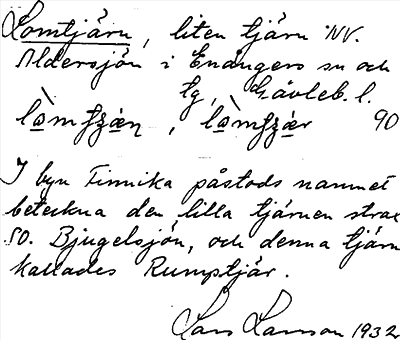 Lomtjärn, liten tjärn NV.
Aldersjön i Enångers sn och
tg, Gävleb. l.
90
I byn Finnika påstods namnet
beteckna den lilla tjärnen strax
SO. Bjugelsjön, och denna tjärn
kallades Rumptjär.
Lars Larsson 1932